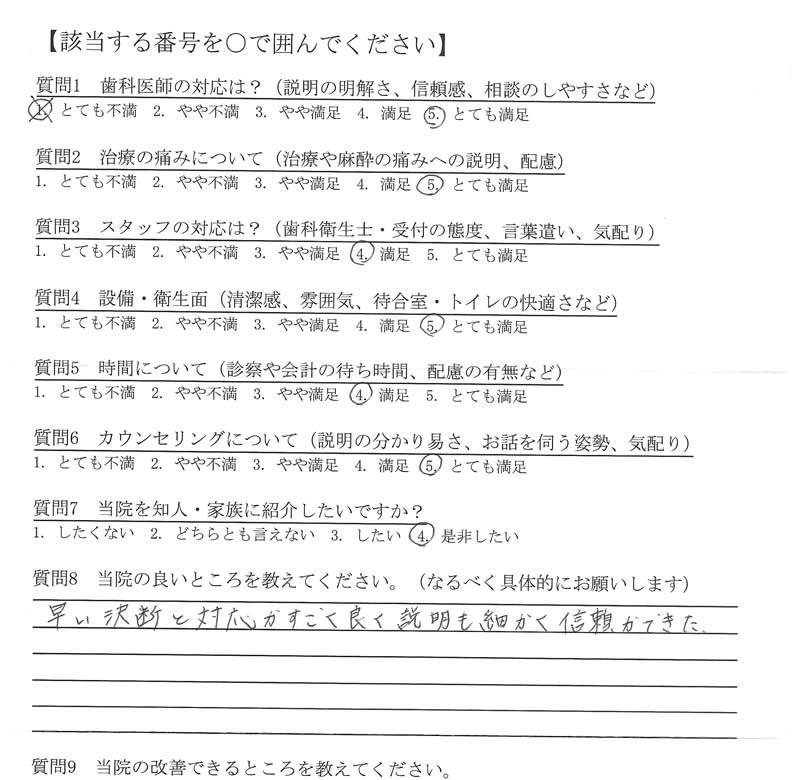 【該当する番号を○で囲んでください】
質問1　歯科医師の対応は？（説明の明解さ、信頼感、相談のしやすさなど）
1. とても不満　2. やや不満　3. やや満足　4. 満足　5. とても満足
質問2　治療の痛みについて（治療や麻酔の痛みへの説明、配慮）
1. とても不満　2. やや不満　3. やや満足　4. 満足　5. とても満足
質問3　スタッフの対応は？（歯科衛生士・受付の態度、言葉遣い、気配り）
1. とても不満　2. やや不満　3. やや満足　4. 満足　5. とても満足
質問4　設備・衛生面（清潔感、雰囲気、待合室・トイレの快適さなど）
1. とても不満　2. やや不満　3. やや満足　4. 満足　5. とても満足
質問5　時間について（診察や会計の待ち時間、配慮の有無など）
1. とても不満　2. やや不満　3. やや満足　4. 満足　5. とても満足
質問6　カウンセリングについて（説明の分かり易さ、お話を伺う姿勢、気配り）
1. とても不満　2. やや不満　3. やや満足　4. 満足　5. とても満足
質問7　当院を知人・家族に紹介したいですか？
1. したくない　2. どちらとも言えない　3. したい　4. 是非したい
質問8　当院の良いところを教えてください。（なるべく具体的にお願いします）
早い決断と対応がすごく良く説明も細かく信頼ができた。
質問9　当院の改善できるところを教えてください。